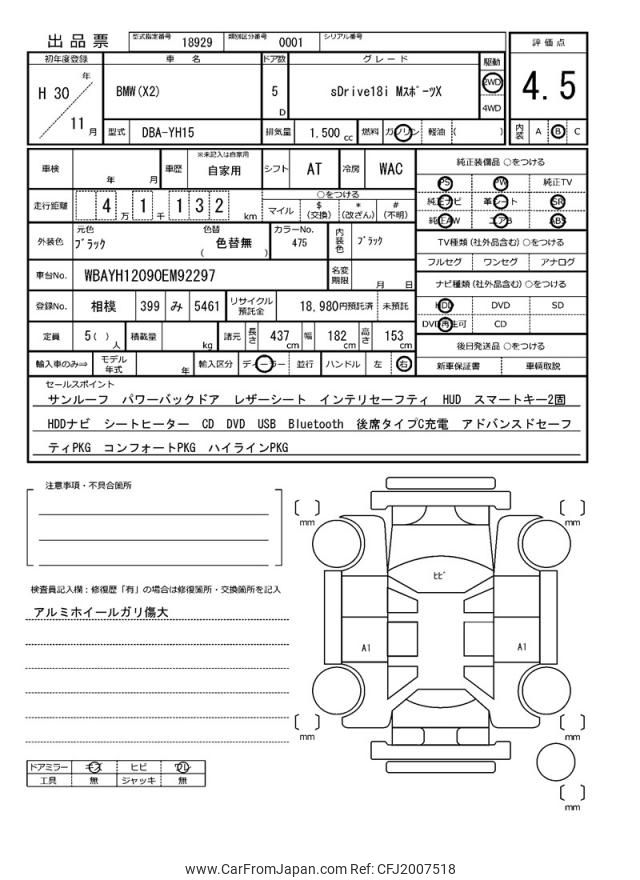 出品票 型式指定番号 18929 類別区分番号 0001 シリアル番号
評価点
4.5
内装 A B C
初年度登録 車 名 ドア数 グレード 駆動
H 30 年 11 月 BMW(X2) 5 D sDrive18i MスポーツX 2WD 4WD
型式 DBA-YH15 排気量 1.500 cc 燃料 ガソリン 軽油 ( )
車検 年 月 車歴 ※未記入は自家用 自家用 シフト AT 冷房 WAC
走行距離 4 万 1 千 1 3 2 km ○をつける
マイル $ (交換) * (改ざん) # (不明)
外装色 元色 ブラック 色替 ( 色替無 ) カラーNo. 475 内装色 ブラック
車台No. WBAYH12090EM92297 名変期限 月 日
登録No. 相模 399 み 5461 リサイクル預託金 18,980円預託済 未預託
定員 5( ) 人 積載量 kg 諸元 長さ 437 cm 幅 182 cm 高さ 153 cm
輸入車のみ⇒ モデル年式 年 輸入区分 ディーラー 並行 ハンドル 左 右
純正装備品 ○をつける
PS PW 純正TV
純正ナビ 革シート SR
純正AW エアB ABS
TV種類 (社外品含む) ○をつける
フルセグ ワンセグ アナログ
ナビ種類 (社外品含む) ○をつける
HDD DVD SD
DVD再生可 CD
後日発送品 ○をつける
新車保証書 車輌取説
セールスポイント
サンルーフ パワーバックドア レザーシート インテリセーフティ HUD スマートキー2固
HDDナビ シートヒーター CD DVD USB Bluetooth 後席タイプC充電 アドバンスドセーフ
ティPKG コンフォートPKG ハイラインPKG
注意事項・不具合箇所
検査員記入欄:修復歴「有」の場合は修復箇所・交換箇所を記入
アルミホイールガリ傷大
ドアミラー キズ ヒビ ワレ
工具 無 ジャッキ 無
mm mm
ヒビ
A1 A1
mm mm
mm
www.CarFromJapan.com Ref: CFJ2007518